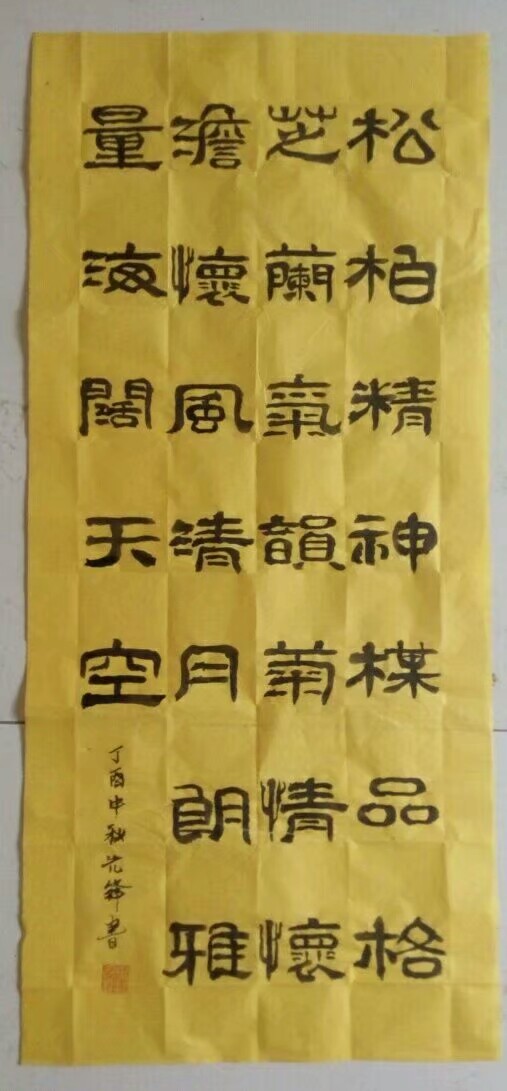 松柏精神楳品格
芝蘭氣韻菊情懷
澹懷風清月朗雅
量海闊天空
丁酉中秋書